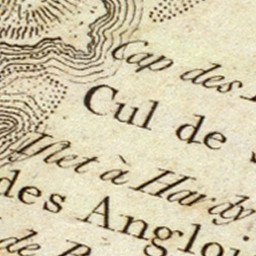 Cap des
Cul de
Islet à Hardy
des Angloi
de